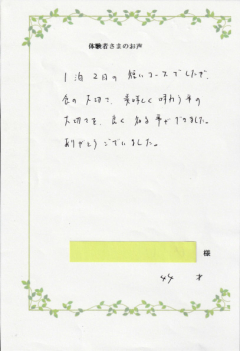 体験者さまのお声
1泊2日の短いコースでしたが、
食の大切さ、美味しく味わう事の
大切さを、良く知る事ができました。
ありがとうございました。
様
44 才